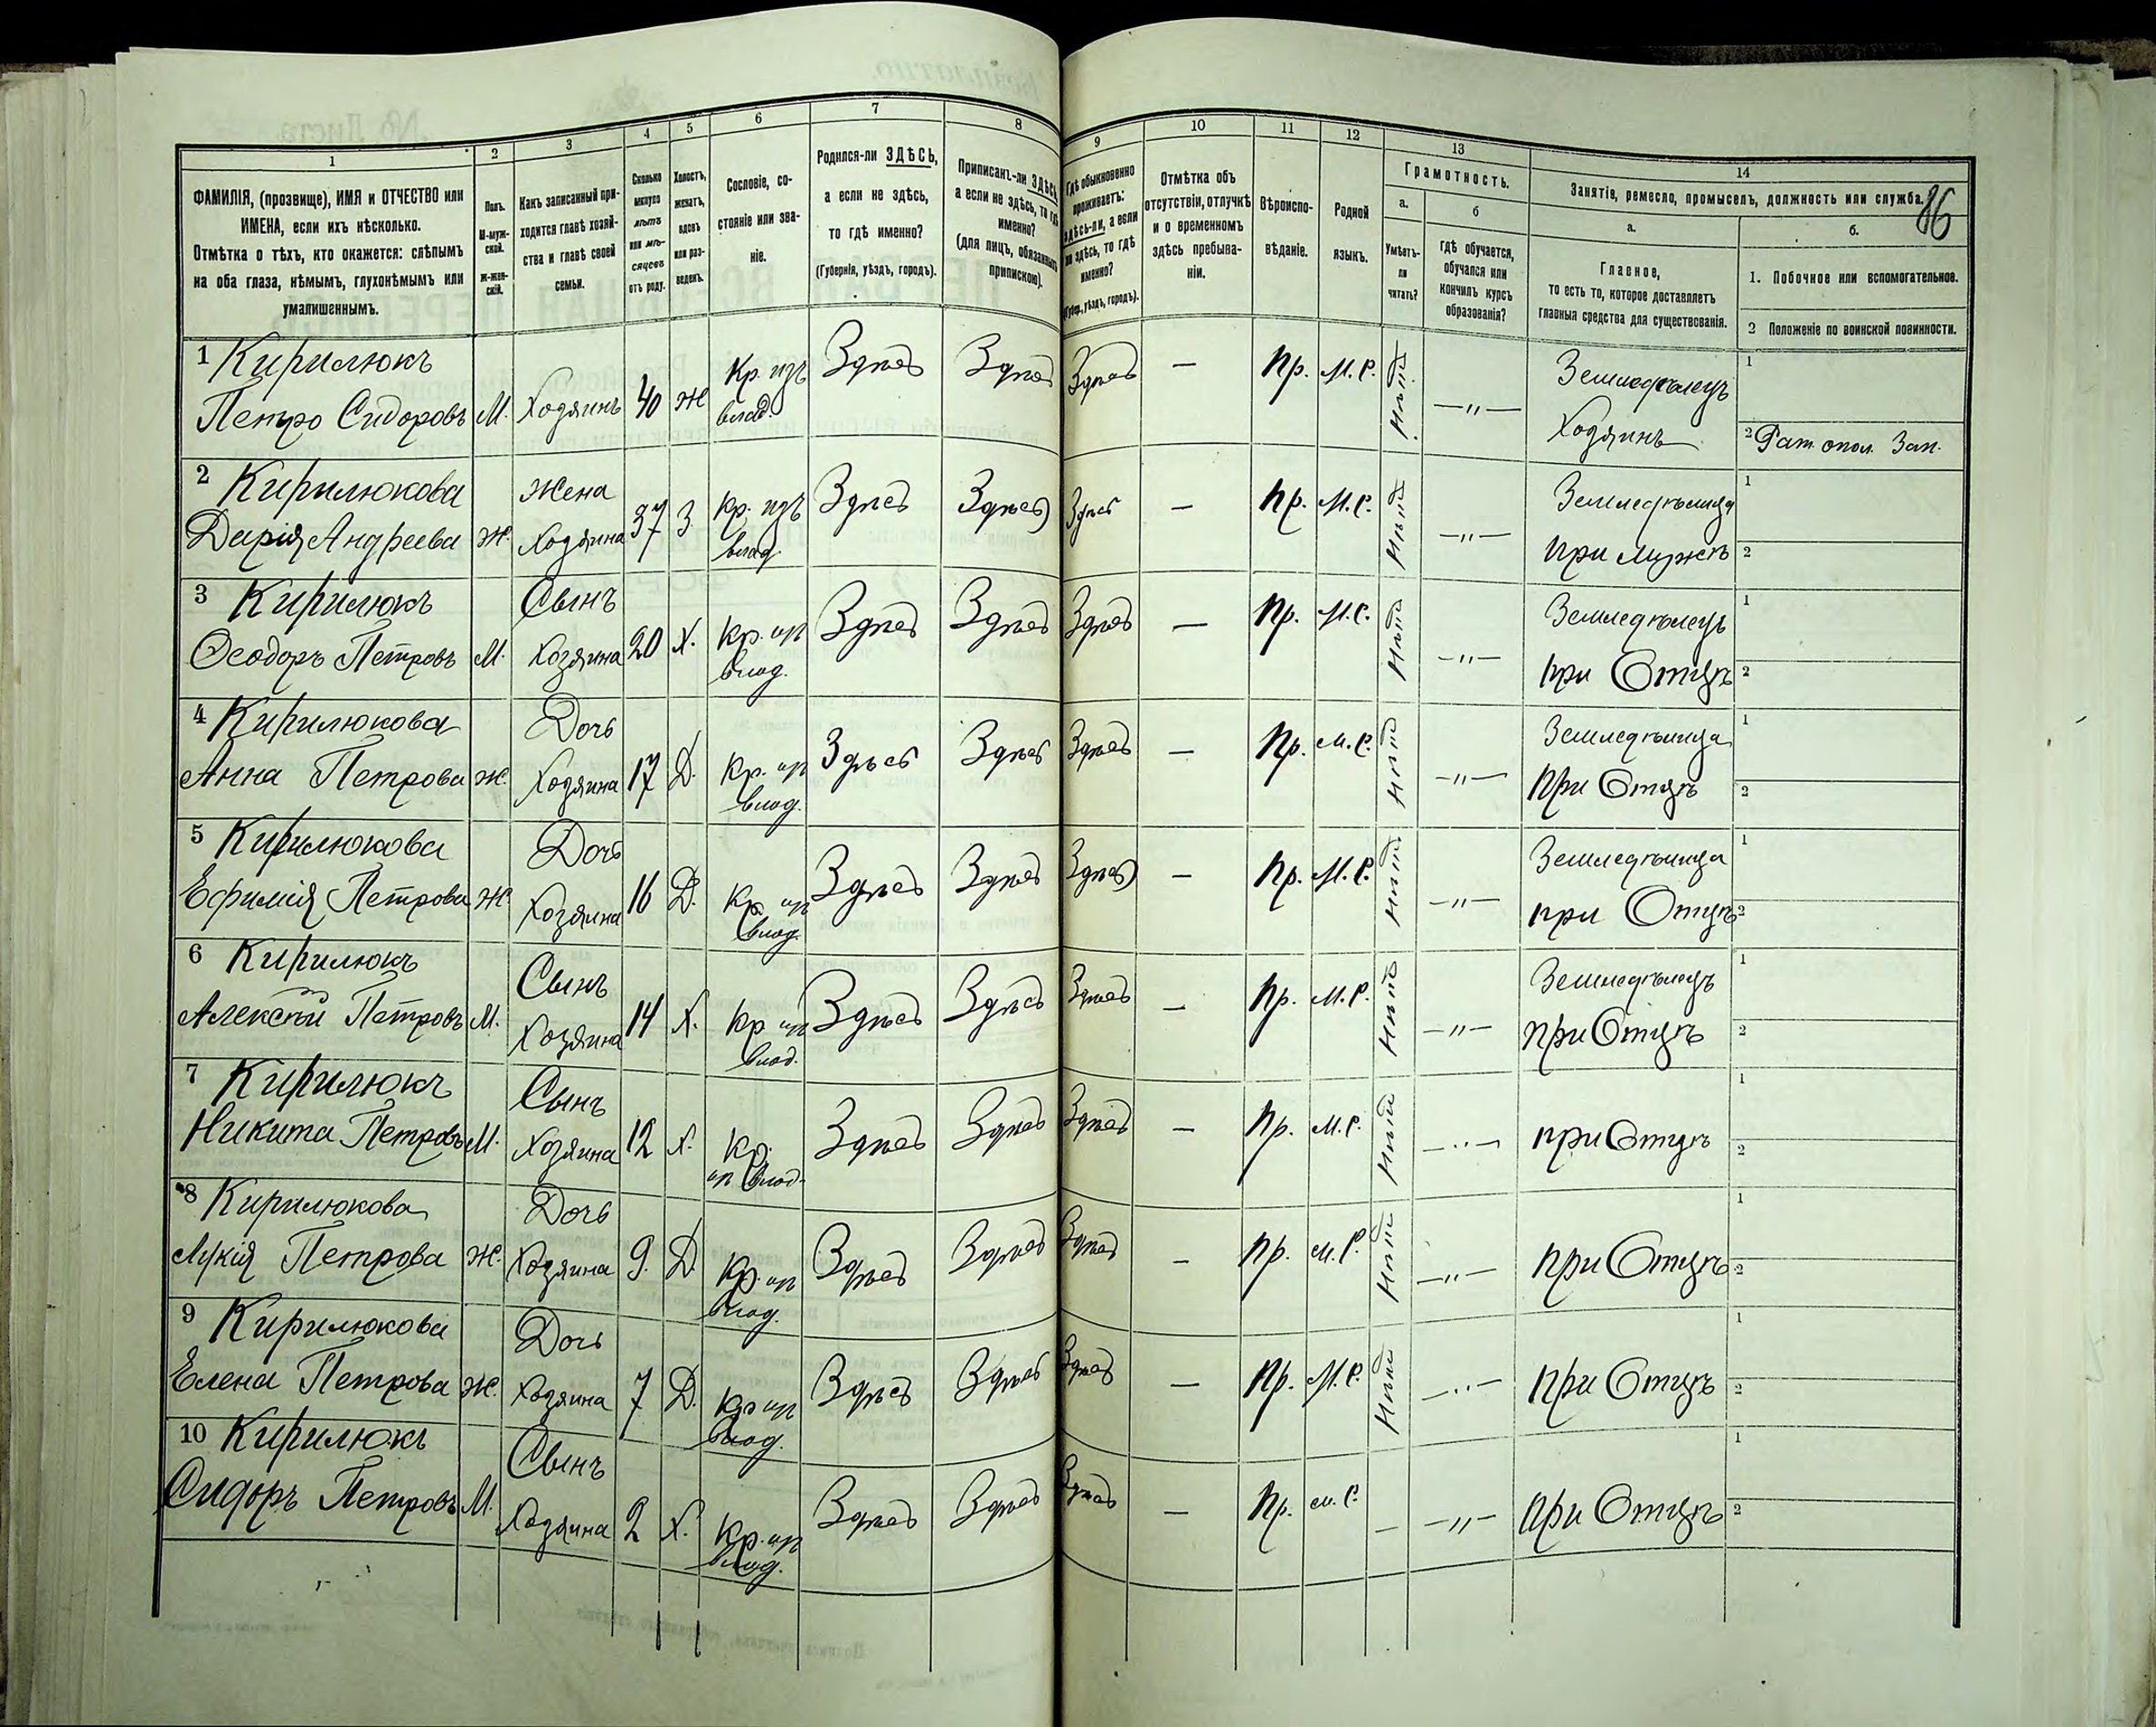 1 2 3 4 5 6 7 8 9 10 11 12 13 14
ФАМИЛІЯ, (прозвище), ИМЯ и ОТЧЕСТВО или
ИМЕНА, если ихъ нѣсколько.
Отмѣтка о тѣхъ, кто окажется: слѣпымъ
на оба глаза, нѣмымъ, глухонѣмымъ или
умалишеннымъ.
Полъ.
М-муж-
ской.
Ж-жен-
скій.
Какъ записанный при-
ходится главѣ хозяй-
ства и главѣ своей
семьи.
Сколько
минуло
лѣтъ
или мѣ-
сяцевъ
отъ роду.
Холостъ,
женатъ,
вдовъ
или раз-
веденъ.
Сословіе, со-
стояніе или зва-
ніе.
Родился-ли ЗДѢСЬ,
а если не здѣсь,
то гдѣ именно?
(Губернія, уѣздъ, городъ).
Приписанъ-ли ЗДѢСЬ,
а если не здѣсь, то гдѣ
именно?
(для лицъ, обязанныхъ
припискою).
Гдѣ обыкновенно
проживаетъ:
здѣсь-ли, а если
не здѣсь, то гдѣ
именно?
(Губер., уѣздъ, городъ).
Отмѣтка объ
отсутствіи, отлучкѣ
и о временномъ
здѣсь пребыва-
ніи.
Вѣроиспо-
вѣданіе.
Родной
языкъ.
Грамотность.
а.
Умѣетъ-
ли
читать?
б
Гдѣ обучается,
обучался или
кончилъ курсъ
образованія?
Занятіе, ремесло, промыселъ, должность или служба.
86
а.
Главное,
то есть то, которое доставляетъ
главныя средства для существованія.
б.
1. Побочное или вспомогательное.
2 Положеніе по воинской повинности.
1 Кирилюкъ Кр. изъ Здѣсь Здѣсь Здѣсь — Пр. М.Р. Нѣтъ Земледѣлецъ 1
Петро Сидоровъ М. Хозяинъ 40 Ж влад. —"— Хозяинъ 2 Рат. опол. Зап.
2 Кирилюкова Жена Кр. изъ Здѣсь Здѣсь Здѣсь — Пр. М.Р. Нѣтъ Земледѣлица 1
Дарія Андреева Ж. Хозяина 37 З влад. —"— при мужѣ 2
3 Кирилюкъ Сынъ Кр. из Здѣсь Здѣсь Здѣсь — Пр. М.Р. Нѣтъ Земледѣлецъ 1
Ѳеодоръ Петровъ М. Хозяина 20 Х. влад. —"— при Отцѣ 2
4 Кирилюкова Дочь Кр. из Здѣсь Здѣсь Здѣсь — Пр. М.Р. Нѣтъ Земледѣлица 1
Анна Петрова Ж. Хозяина 17 Д. влад. —"— При Отцѣ 2
5 Кирилюкова Дочь Кр. из Здѣсь Здѣсь Здѣсь — Пр. М.Р. Нѣтъ Земледѣлица 1
Ефимія Петрова Ж. Хозяина 16 Д. влад. —"— при Отцѣ 2
6 Кирилюкъ Сынъ Кр из Здѣсь Здѣсь Здѣсь — Пр. М.Р. Нѣтъ Земледѣлецъ 1
Алексѣй Петровъ М. Хозяина 14 Х. влад. —"— при Отцѣ 2
7 Кирилюкъ Сынъ Кр. Здѣсь Здѣсь Здѣсь — Пр. М.Р. Нѣтъ 1
Никита Петровъ М. Хозяина 12 Х. из влад. —"— при Отцѣ 2
8 Кирилюкова Дочь Кр. из Здѣсь Здѣсь Здѣсь — Пр. М.Р. Нѣтъ 1
Лукія Петрова Ж. Хозяина 9. Д. влад. —"— при Отцѣ 2
9 Кирилюкова Дочь Кр из Здѣсь Здѣсь Здѣсь — Пр. М.Р. Нѣтъ 1
Елена Петрова Ж. Хозяина 7 Д. влад. —"— при Отцѣ 2
10 Кирилюкъ Сынъ Кр. из Здѣсь Здѣсь Здѣсь — Пр. М.Р. — 1
Сидоръ Петровъ М. Хозяина 2 Х. влад. —"— при Отцѣ 2